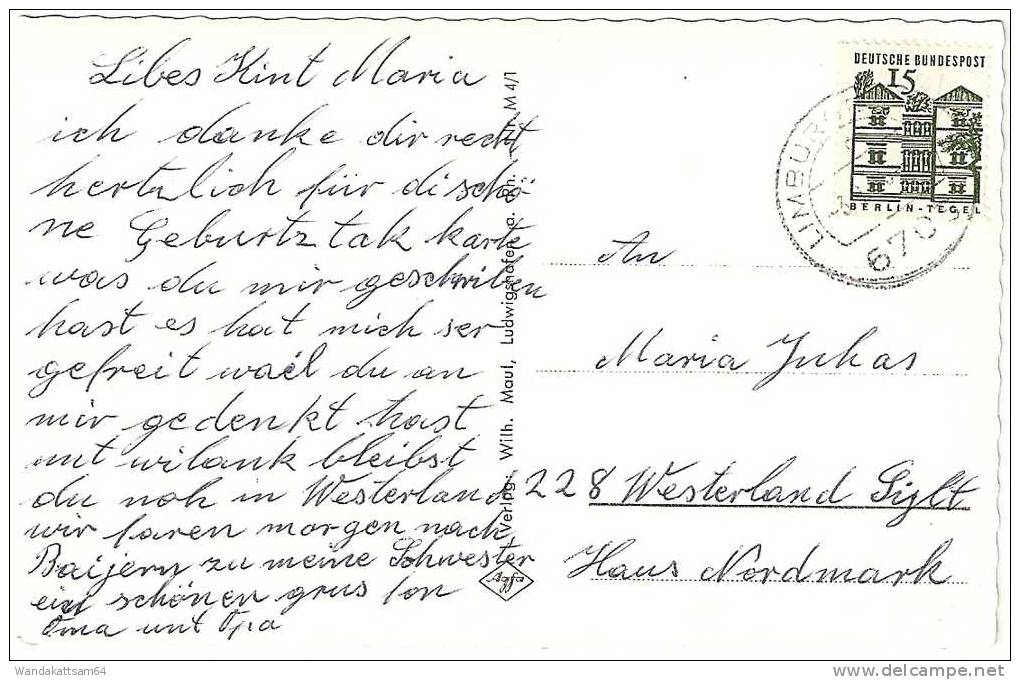 Libes Kint Maria
ich danke dir recht
hertzlich für di schö
ne Geburtztak karte
was du mir geschriben
hast es hat mich ser
gefreit wail du an
mir gedenkt hast
unt wilank bleibst
du noh in Westerland
wir faren morgen nach
Baijern zu meine Schwester
ein schönen grus fon
Oma unt Opa
Verlag: Wilh. Maul, Ludwigshafen a. Rh. M 4/1
Agfa
DEUTSCHE BUNDESPOST
15
BERLIN-TEGEL
LIMBURG
6703
An
Maria Juhas
228 Westerland Sijlt
Haus Nordmark
Wandakattsam64